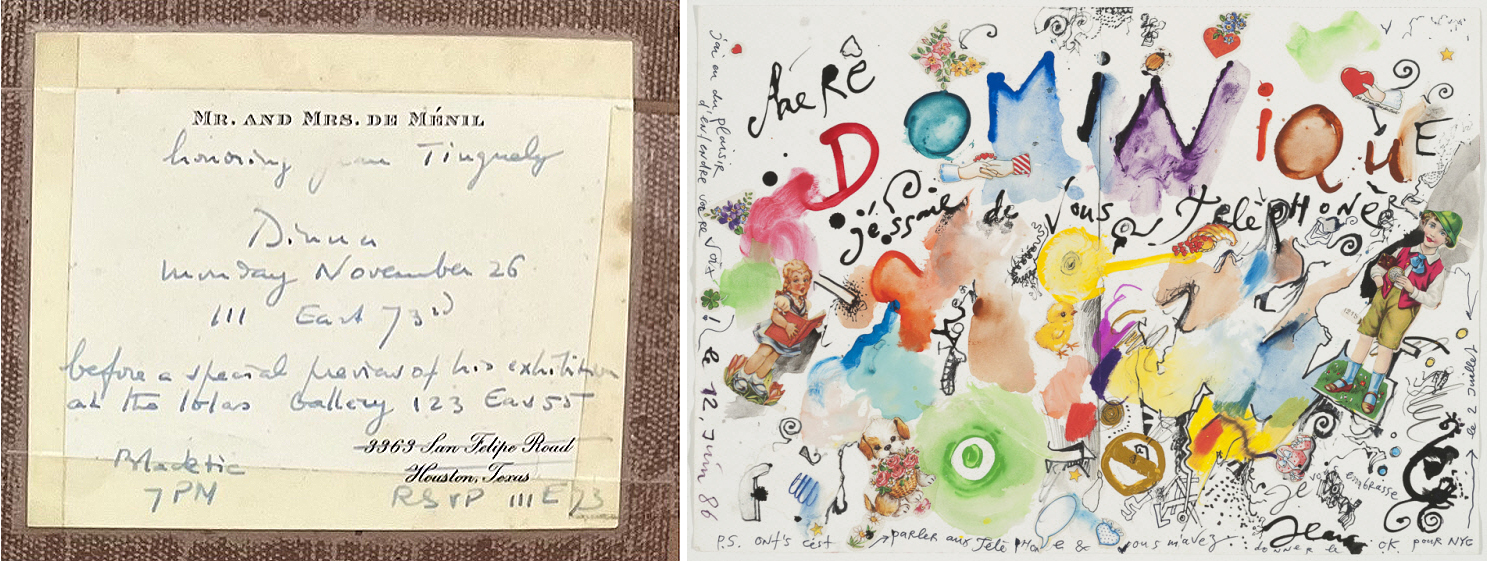 MR. AND MRS. DE MÉNIL
honoring Tinguely
Dinner
monday November 26
111 East 73rd
before a special preview of his exhibition
at the Iolas Gallery 123 East 55
3363 San Felipe Road
Houston, Texas
Black tie
7 PM
RSVP 111 E 73
j'ai eu du plaisir
d'entendre votre voix
le 12. Juin 86
DOMiNiQUE
j'éssaie de vous TélèpHonèr
je vous embrasse
Jean
le 2 Juillet
P.S. ont's c'est parler au TélèpHone & vous m'avez donner le OK pour NYC